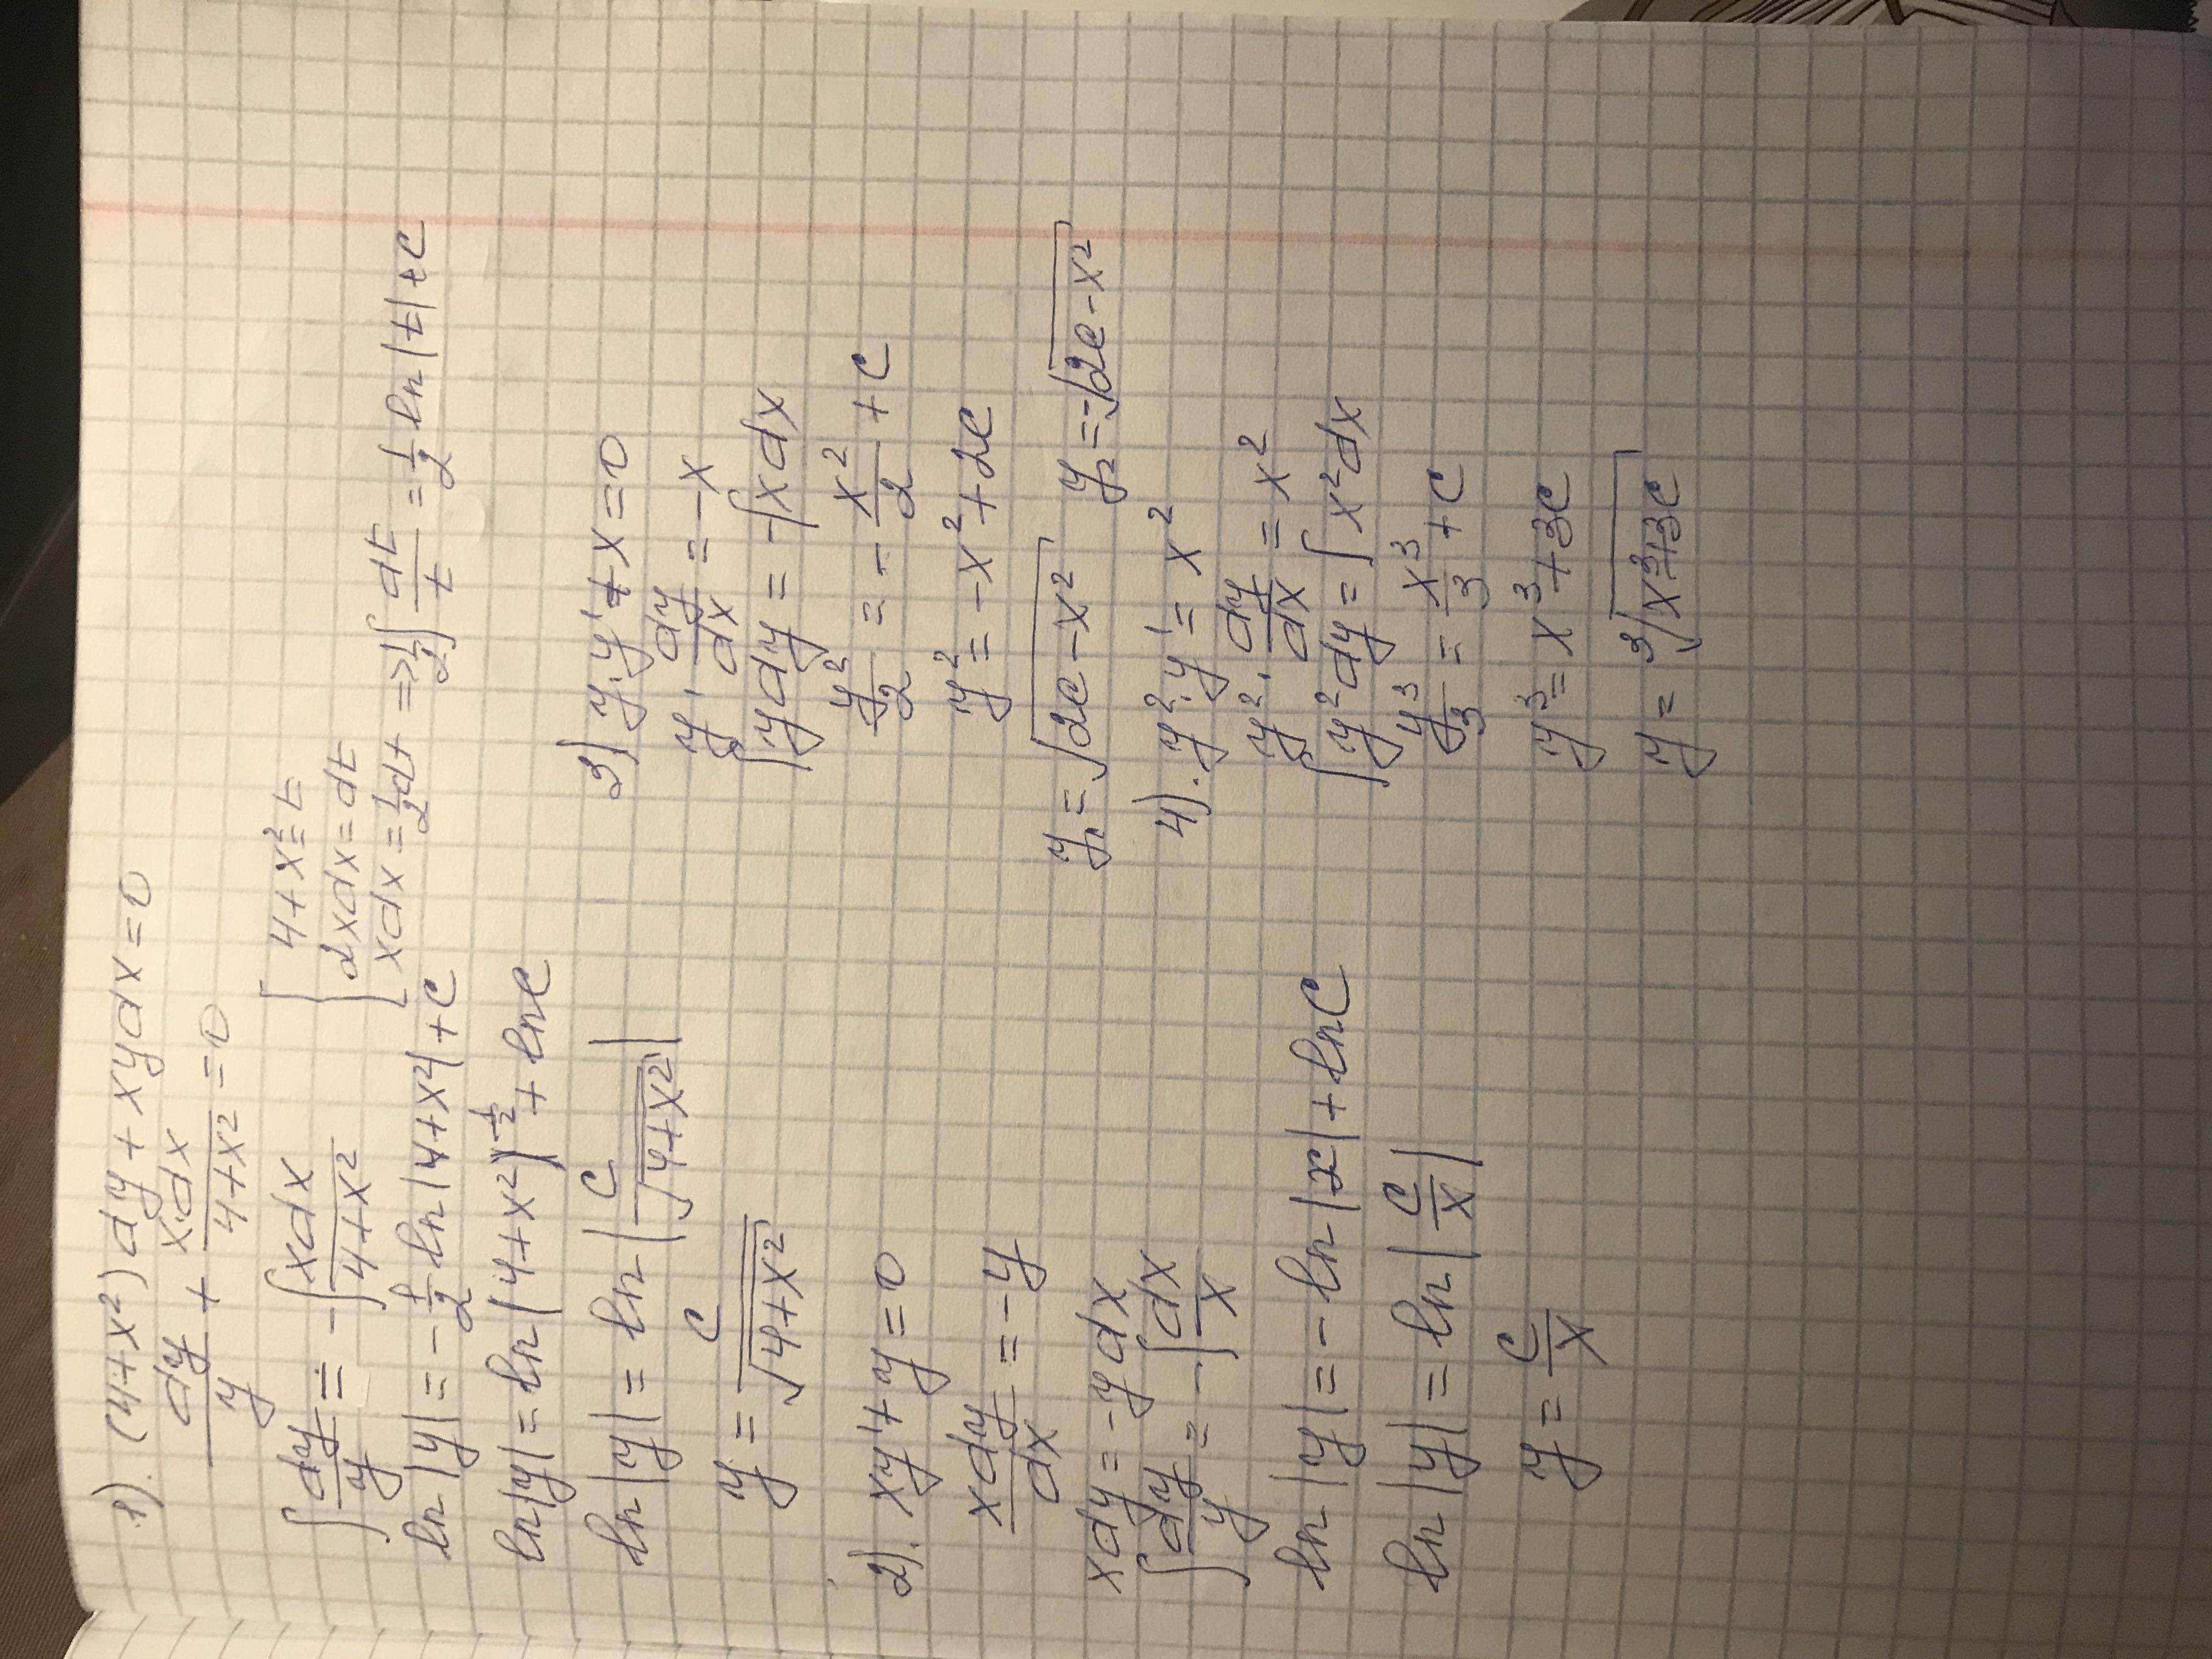 1). (4+x²)dy + xydx = 0
dy/y + x·dx/(4+x²) = 0
∫dy/y = -∫xdx/(4+x²)
[4+x² = t
2xdx = dt
xdx = 1/2 dt => 1/2 ∫dt/t = 1/2 ln|t| + c
ln|y| = -1/2 ln|4+x²| + c
ln|y| = ln|4+x²|^(-1/2) + ln c
ln|y| = ln|c/√(4+x²)|
y = c/√(4+x²)
2). xy' + y = 0
xdy/dx = -y
xdy = -ydx
∫dy/y = -∫dx/x
ln|y| = -ln|x| + ln C
ln|y| = ln|c/x|
y = c/x
3) y·y' + x = 0
y·dy/dx = -x
∫ydy = -∫xdx
y²/2 = -x²/2 + c
y² = -x² + 2c
y₁ = √(2c-x²) y₂ = -√(2c-x²)
4). y²·y' = x²
y²·dy/dx = x²
∫y²dy = ∫x²dx
y³/3 = x³/3 + c
y³ = x³ + 3c
y = ³√(x³+3c)